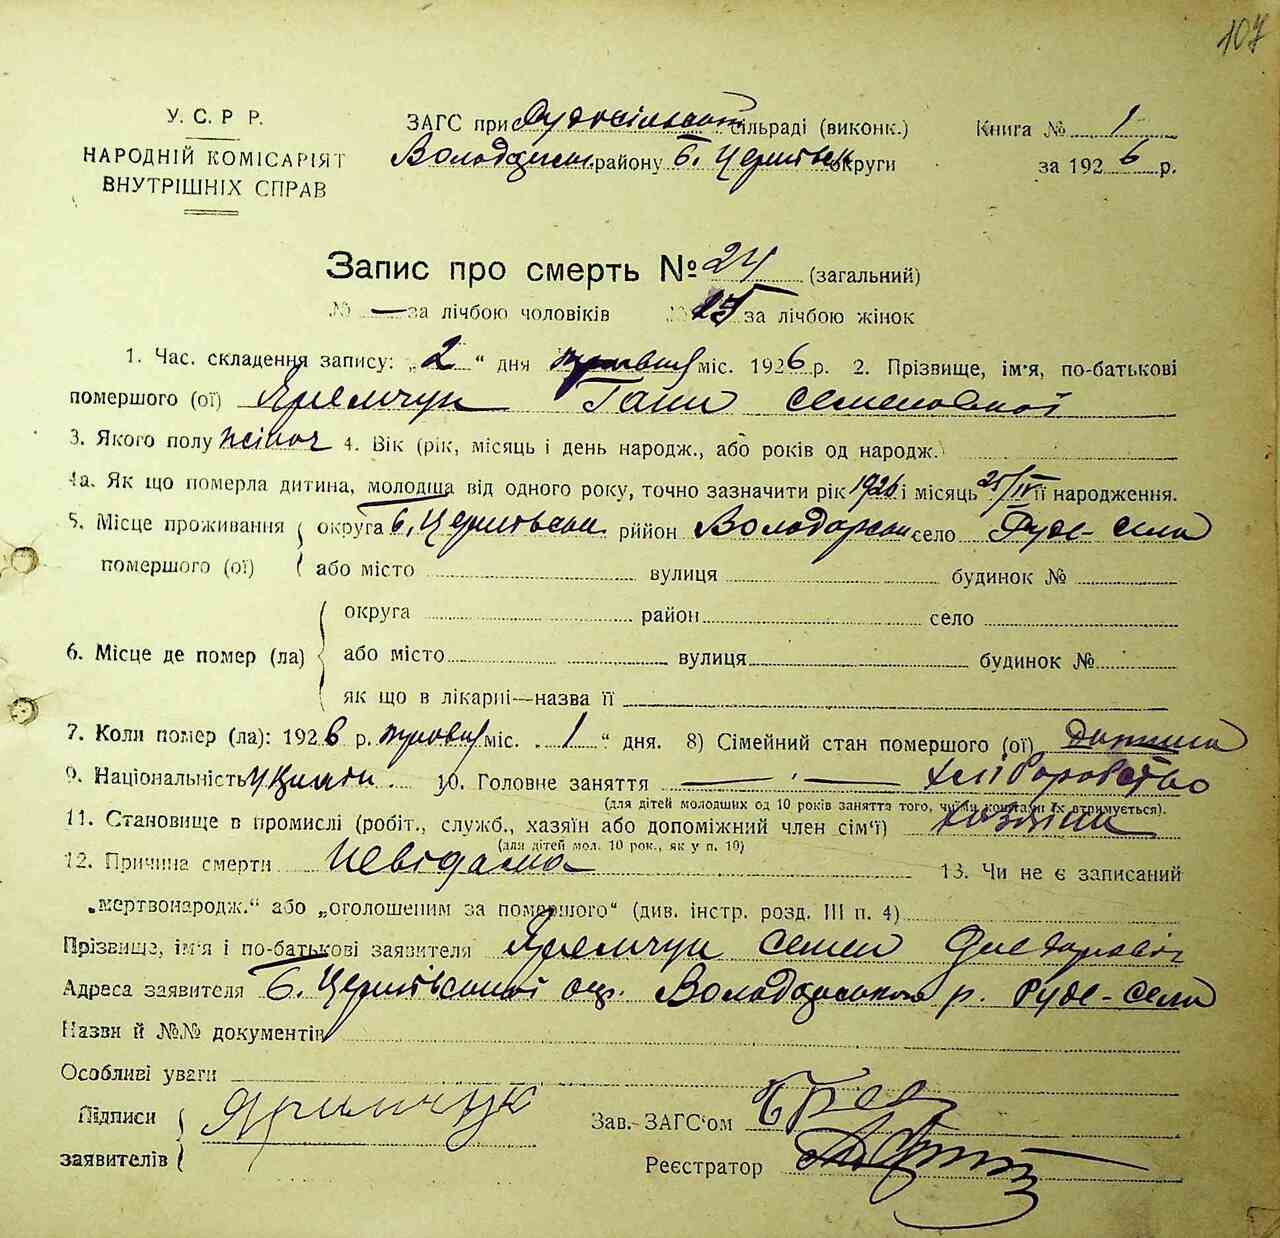 107
У. С. Р. Р.
НАРОДНІЙ КОМІСАРІЯТ
ВНУТРІШНІХ СПРАВ
ЗАГС при Рудосільській сільраді (виконк.)
Володарськ. району Б. Церківськ округи
Книга № 1
за 1926 р.
Запис про смерть № 24 (загальний)
№ — за лічбою чоловіків № 15 за лічбою жінок
1. Час. складення запису: „2“ дня травня міс. 1926 р. 2. Прізвище, ім'я, по-батькові
помершого (ої) Яремчук Гани Семеновної
3. Якого полу жіноч 4. Вік (рік, місяць і день народж., або років од народж.)
4а. Як що померла дитина, молодша від одного року, точно зазначити рік 1926 і місяць 25/IV її народження.
5. Місце проживання помершого (ої) округа Б. Церківськ. рийон Володарськ село Руде-село
або місто вулиця будинок №
6. Місце де помер (ла) округа район село
або місто вулиця будинок №
як що в лікарні—назва її
7. Коли помер (ла): 1926 р. травня міс. „1“ дня. 8) Сімейний стан помершого (ої) дитина
9. Національність Україн. 10. Головне заняття — хліборобство
(для дітей молодших од 10 років заняття того, чиїми коштами їх втримується).
11. Становище в промислі (робіт., служб., хазяїн або допоміжний член сім'ї) хазяїн
(для дітей мол. 10 рок., як у п. 10)
12. Причина смерти невідома 13. Чи не є записаний
„мертвонародж.“ або „оголошеним за помершого“ (див. інстр. розд. III п. 4)
Прізвище, ім'я і по-батькові заявителя Яремчук Семен
Адреса заявителя Б. Церківської окр. Володарського р. Руде-село
Назви й №№ документів
Особливі уваги
Підписи заявителів Яримчук
Зав. ЗАГС'ом
Реєстратор